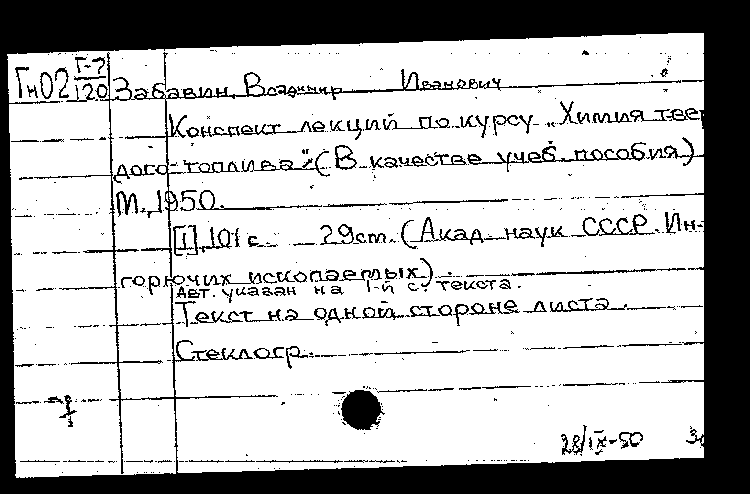 Гн02 Г-7/120 Забавин, Владимир Иванович
Конспект лекций по курсу „Химия твер
дого топлива“. (В качестве учеб. пособия)
М., 1950.
[1], 101 с. 29 cm. (Акад. наук СССР. Ин-
горючих ископаемых).
Авт. указан на 1-й с. текста.
Текст на одной стороне листа.
Стеклогр.
28/IX-50